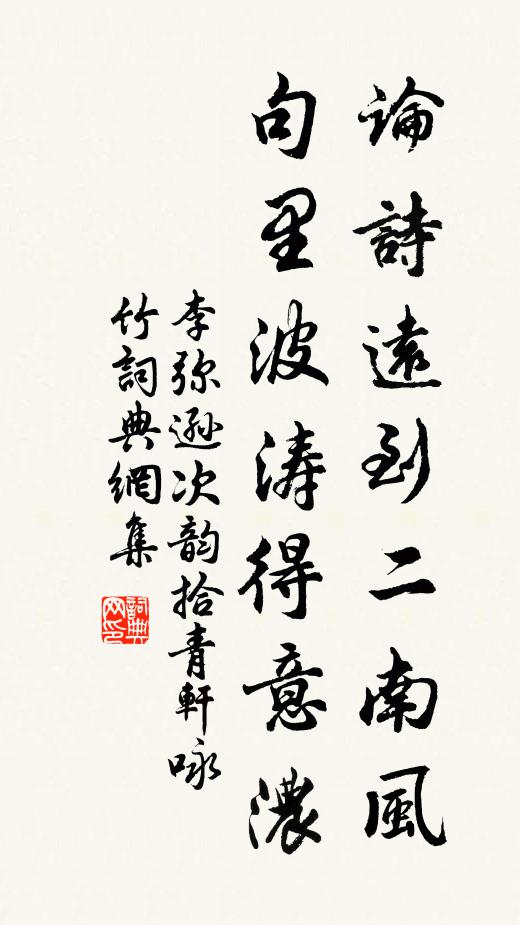 論詩遠到二南風
句里波濤得意濃
李弥遜次韵拾青軒咏
竹詞典網集
詞典
网印